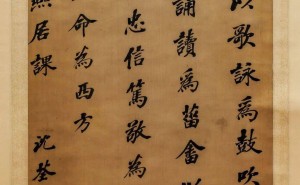 以歌詠為鼓吹
誦讀為菑畬
忠信篤敬為
命為西方
燕居課 沈荃